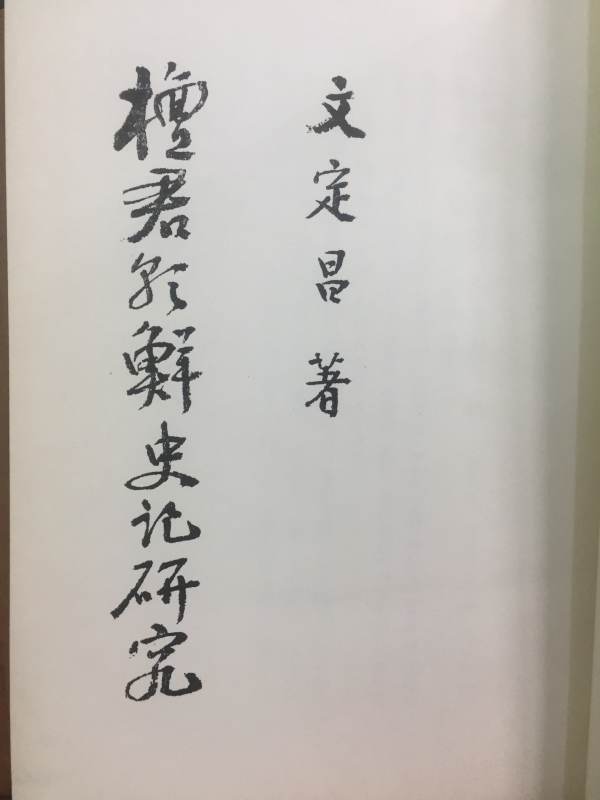 文定昌 著
檀君朝鮮史記硏究